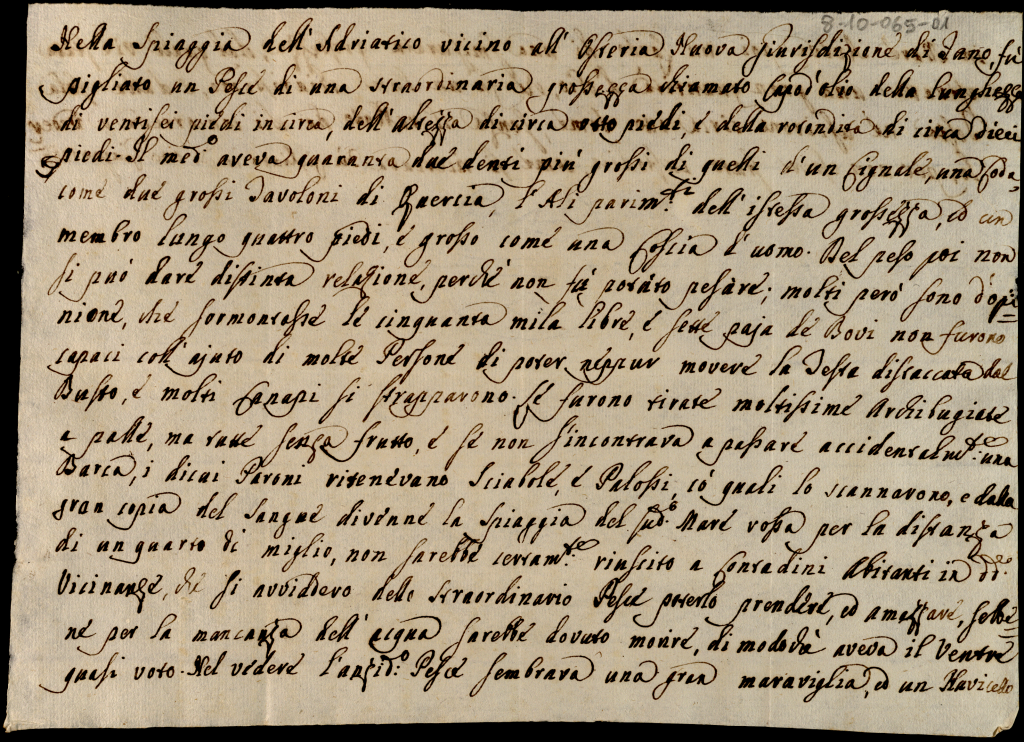 8-10-065-01
Nella Spiaggia dell' Adriatico vicino all' Osteria Nuova Giurisdizione di Fano, fù
pigliato un Pesce di una straordinaria grossezza chiamato Capod'olio della lunghezza
di ventisei piedi in circa, dell' altezza di circa otto piedi, e della rotondità di circa Dieci
piedi. Il med.o aveva quaranta due denti più grossi di quelli d'un Cignale, una Coda
come due grossi Tavoloni di Quercia, l'Ali parim.ti dell' istessa grossezza, ed un
membro lungo quattro piedi, e grosso come una Coscia d'uomo. Del peso poi non
si può dare distinta relazione, perché non fù potuto pesare; molti però sono d'opi=
nione, che sormontasse le cinquanta mila libre, e sette paja de Bovi non furono
capaci coll' ajuto di molte Persone di poter neppur movere la Testa distaccata dal
Busto, e molti Canapi si strapparono. Le furono tirate moltissime Archibugiate
a palle, ma tutte senza frutto, e se non s'incontrava a passare accidentalm.te una
Barca, i di cui Paroni ritenevano Sciabole, e Palossi, co' quali lo scannarono, e dalla
gran copia del Sangue divenne la Spiaggia del sud.o Mare rossa per la distanza
di un quarto di miglio, non sarebbe certam.te riuscito a Contadini Abitanti in d.e
Vicinanze, che si avviddero dello straordinario Pesce poterlo prendere, ed amazzare, sebbe=
ne per la mancanza dell' acqua sarebbe dovuto morire, di modoche aveva il Ventre
quasi voto. Nel vedere l'anzid.o Pesce sembrava una gran maraviglia, ed un Navicello